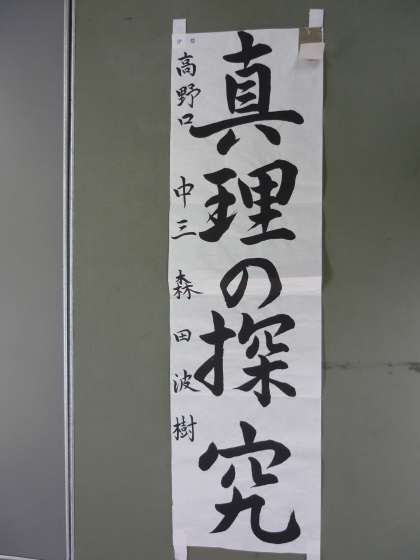 真理の探究
高野口 中三 森田波樹